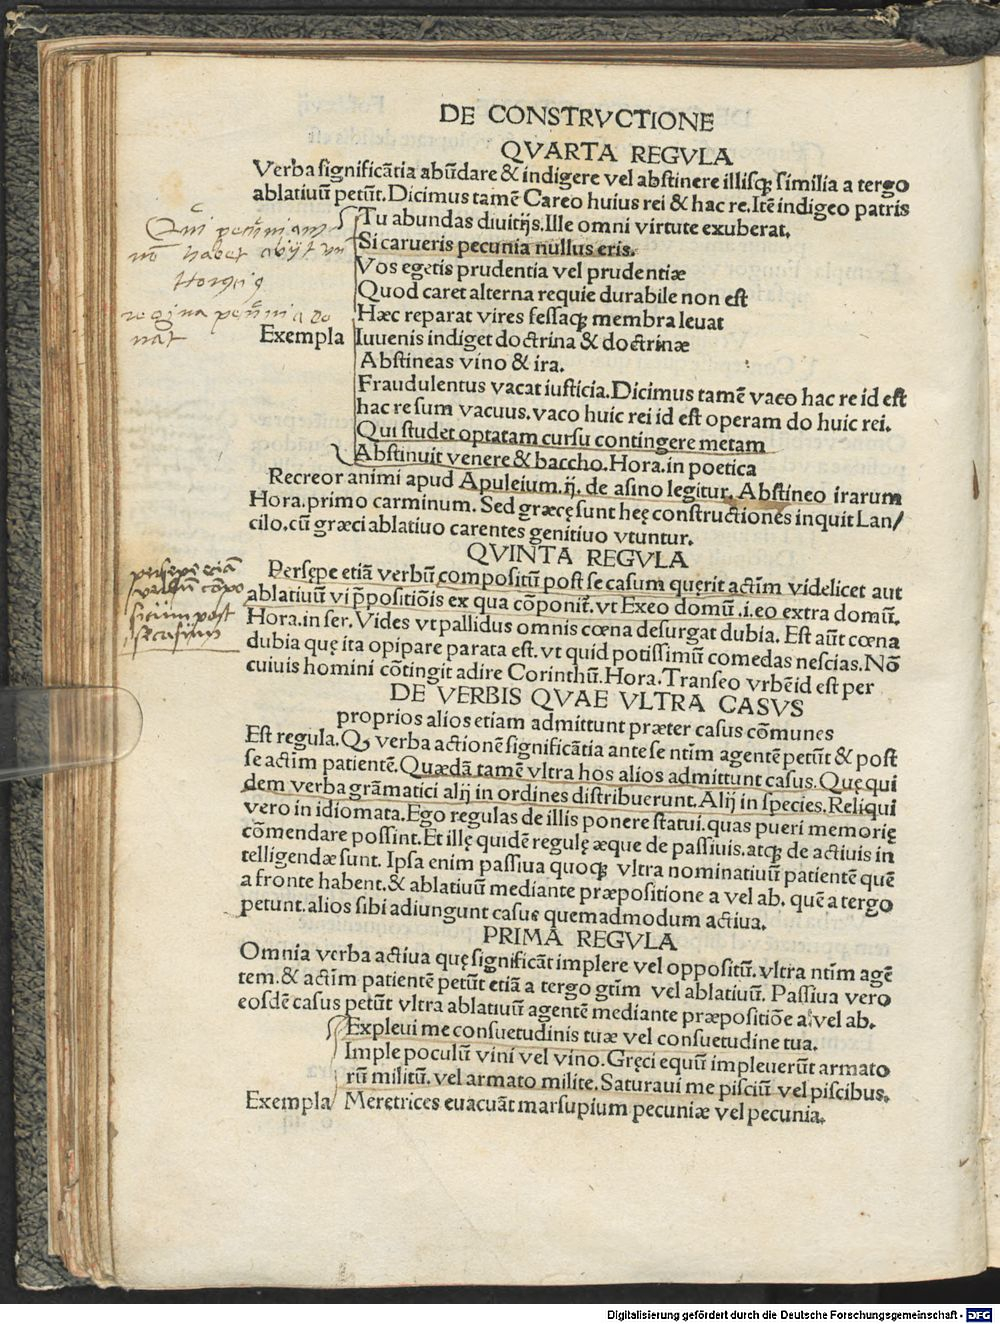 DE CONSTRVCTIONE
QVARTA REGVLA
Verba significãtia abũdare & indigere vel abstinere illisq; similia a tergo
ablatiuũ petũt. Dicimus tamẽ Careo huius rei & hac re. Itẽ indigeo patris
Tu abundas diuitijs. Ille omni virtute exuberat.
Si carueris pecunia nullus eris.
Vos egetis prudentia vel prudentiæ
Quod caret alterna requie durabile non est
Hæc reparat vires fessaq; membra leuat
Exempla Iuuenis indiget doctrina & doctrinæ
Abstineas vino & ira.
Fraudulentus vacat iusticia. Dicimus tamẽ vaco hac re id est
hac re sum vacuus. vaco huic rei id est operam do huic rei.
Qui studet optatam cursu contingere metam
Abstinuit venere & baccho. Hora. in poetica
Recreor animi apud Apuleium. ij. de asino legitur. Abstineo irarum
Hora. primo carminum. Sed græcę sunt heę constructiones inquit Lan/
cilo. cũ græci ablatiuo carentes genitiuo vtuntur.
non habet abijt
regina do
nat
QVINTA REGVLA
Persępe etiã verbũ compositũ post se casum quęrit actĩm videlicet aut
ablatiuũ vi p̃positiõis ex qua cõponit᷑. vt Exeo domũ .i. eo extra domũ.
Hora. in ser. Vides vt pallidus omnis cœna desurgat dubia. Est aũt cœna
dubia quę ita opipare parata est. vt quid potissimũ comedas nescias. Nõ
cuiuis homini cõtingit adire Corinthũ. Hora. Transeo vrbẽ id est per
persepe etiã
verbũ cõpo
situm post
se casum
DE VERBIS QVAE VLTRA CASVS
proprios alios etiam admittunt præter casus cõmunes
Est regula. Q, verba actionẽ significãtia ante se ntĩm agentẽ petũt & post
se actĩm patientẽ. Quædã tamẽ vltra hos alios admittunt casus. Quę qui
dem verba grãmatici alij in ordines distribuerunt. Alij in species. Reliqui
vero in idiomata. Ego regulas de illis ponere statui. quas pueri memorię
cõmendare possint. Et illę quidẽ regulę æque de passiuis. atq; de actiuis in
telligendæ sunt. Ipsa enim passiua quoq; vltra nominatiuũ patientẽ quẽ
a fronte habent. & ablatiuũ mediante præpositione a vel ab. quẽ a tergo
petunt. alios sibi adiungunt casus quemadmodum actiua.
PRIMA REGVLA
Omnia verba actiua quę significãt implere vel oppositũ. vltra ntĩm agẽ
tem. & actĩm patientẽ petũt etiã a tergo gtĩm vel ablatiuũ. Passiua vero
eosdẽ casus petũt vltra ablatiuũ agentẽ mediante præpositiõe a vel ab.
Expleui me consuetudinis tuæ vel consuetudine tua.
Imple poculũ vini vel vino. Gręci equũ impleuerũt armato
rũ militũ. vel armato milite. Saturaui me pisciũ vel piscibus.
Exempla Meretrices euacuãt marsupium pecuniæ vel pecunia.
Digitalisierung gefördert durch die Deutsche Forschungsgemeinschaft - DFG